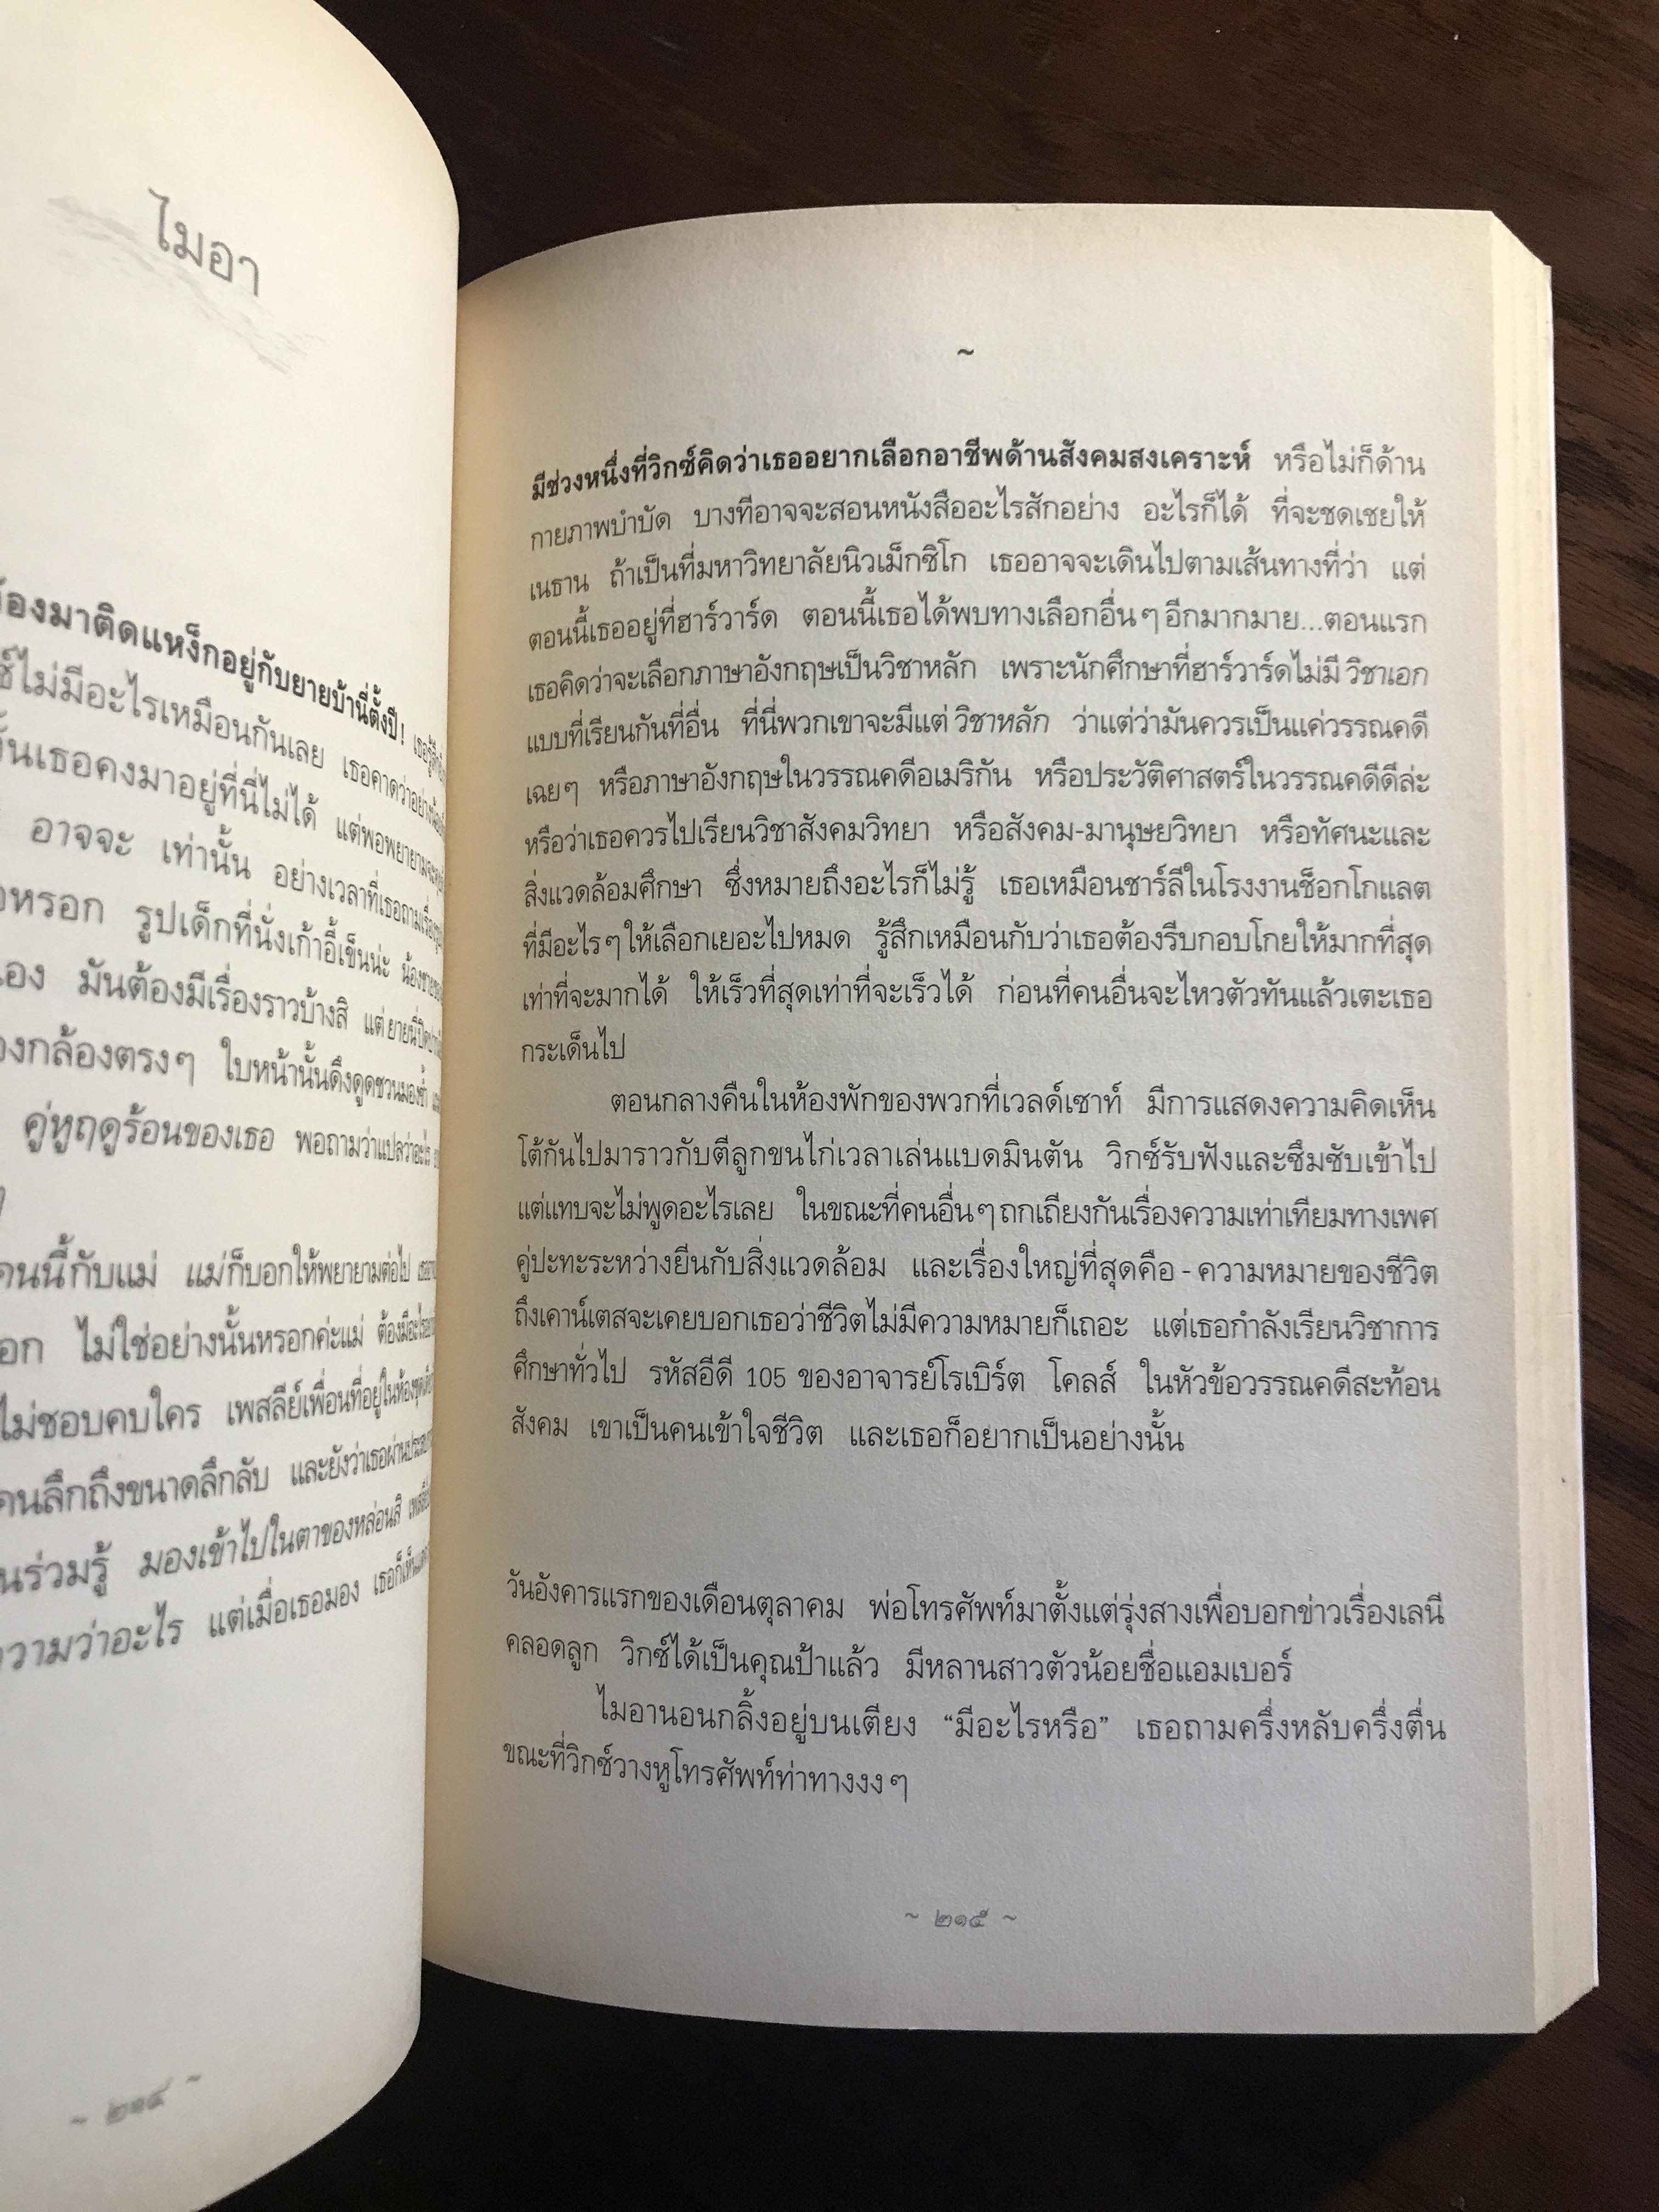 ไมอา
้องมาติดแหง็กอยู่กับยายบ้านี่ตั้งปี!
ไม่มีอะไรเหมือนกันเลย เธอคาดว่าอย่างน้อย
เธอคงมาอยู่ที่นี่ไม่ได้ แต่พอพยายามจะ
อาจจะ เท่านั้น อย่างเวลาที่เธอถามเรื่อง
หรอก รูปเด็กที่นั่งเก้าอี้เข็นน่ะ
มันต้องมีเรื่องราวบ้างสิ แต่ยายนี่
กล้องตรงๆ ใบหน้านั้นดึงดูดชวนมองซ้ำ
คู่หูฤดูร้อนของเธอ พอถามว่าแปลว่าอะไร
คนนี้กับแม่ แม่ก็บอกให้พยายามต่อไป
ไม่ใช่อย่างนั้นหรอกค่ะแม่
ไม่ชอบคบใคร เพสลีย์เพื่อนที่อยู่ในห้อง
คนลึกถึงขนาดลึกลับ และยังว่าเธอผ่าน
ร่วมรู้ มองเข้าไปในตาของหล่อนสิ
ความว่าอะไร แต่เมื่อเธอมอง
~ ๒๑๔ ~
~
มีช่วงหนึ่งที่วิกซ์คิดว่าเธออยากเลือกอาชีพด้านสังคมสงเคราะห์ หรือไม่ก็ด้าน
กายภาพบำบัด บางทีอาจจะสอนหนังสืออะไรสักอย่าง อะไรก็ได้ ที่จะชดเชยให้
เนธาน ถ้าเป็นที่มหาวิทยาลัยนิวเม็กซิโก เธออาจจะเดินไปตามเส้นทางที่ว่า แต่
ตอนนี้เธออยู่ที่ฮาร์วาร์ด ตอนนี้เธอได้พบทางเลือกอื่นๆ อีกมากมาย...ตอนแรก
เธอคิดว่าจะเลือกภาษาอังกฤษเป็นวิชาหลัก เพราะนักศึกษาที่ฮาร์วาร์ดไม่มี วิชาเอก
แบบที่เรียนกันที่อื่น ที่นี่พวกเขาจะมีแต่ วิชาหลัก ว่าแต่ว่ามันควรเป็นแค่วรรณคดี
เฉยๆ หรือภาษาอังกฤษในวรรณคดีอเมริกัน หรือประวัติศาสตร์ในวรรณคดีดีล่ะ
หรือว่าเธอควรไปเรียนวิชาสังคมวิทยา หรือสังคม-มานุษยวิทยา หรือทัศนะและ
สิ่งแวดล้อมศึกษา ซึ่งหมายถึงอะไรก็ไม่รู้ เธอเหมือนชาร์ลีในโรงงานช็อกโกแลต
ที่มีอะไรๆ ให้เลือกเยอะไปหมด รู้สึกเหมือนกับว่าเธอต้องรีบกอบโกยให้มากที่สุด
เท่าที่จะมากได้ ให้เร็วที่สุดเท่าที่จะเร็วได้ ก่อนที่คนอื่นจะไหวตัวทันแล้วเตะเธอ
กระเด็นไป
ตอนกลางคืนในห้องพักของพวกที่เวลด์เซาท์ มีการแสดงความคิดเห็น
โต้กันไปมาราวกับตีลูกขนไก่เวลาเล่นแบดมินตัน วิกซ์รับฟังและซึมซับเข้าไป
แต่แทบจะไม่พูดอะไรเลย ในขณะที่คนอื่นๆ ถกเถียงกันเรื่องความเท่าเทียมทางเพศ
คู่ปะทะระหว่างยีนกับสิ่งแวดล้อม และเรื่องใหญ่ที่สุดคือ - ความหมายของชีวิต
ถึงเคาน์เตสจะเคยบอกเธอว่าชีวิตไม่มีความหมายก็เถอะ แต่เธอกำลังเรียนวิชาการ
ศึกษาทั่วไป รหัสอีดี 105 ของอาจารย์โรเบิร์ต โคลส์ ในหัวข้อวรรณคดีสะท้อน
สังคม เขาเป็นคนเข้าใจชีวิต และเธอก็อยากเป็นอย่างนั้น
วันอังคารแรกของเดือนตุลาคม พ่อโทรศัพท์มาตั้งแต่รุ่งสางเพื่อบอกข่าวเรื่องเลนี
คลอดลูก วิกซ์ได้เป็นคุณป้าแล้ว มีหลานสาวตัวน้อยชื่อแอมเบอร์
ไมอานอนกลิ้งอยู่บนเตียง “มีอะไรหรือ” เธอถามครึ่งหลับครึ่งตื่น
ขณะที่วิกซ์วางหูโทรศัพท์ท่าทางงงๆ
~ ๒๑๕ ~